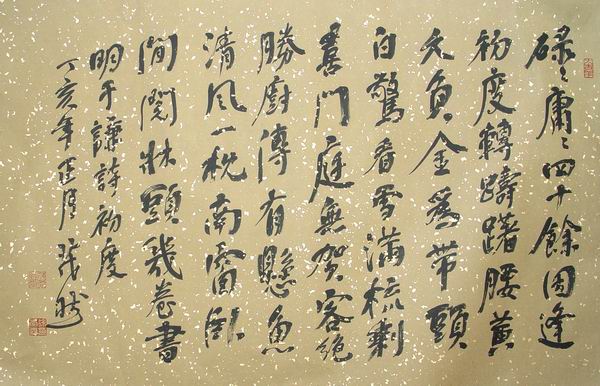 碌〻庸〻四十餘因逢
初度轉躊躇腰黄
久負金爲帶頭
白驚看雪滿梳剩
喜門庭無賀客絶
勝廚傳有懸魚
清風一枕南窗卧
閒閱牀頭幾卷書
明于謙詩初度
丁亥年正月